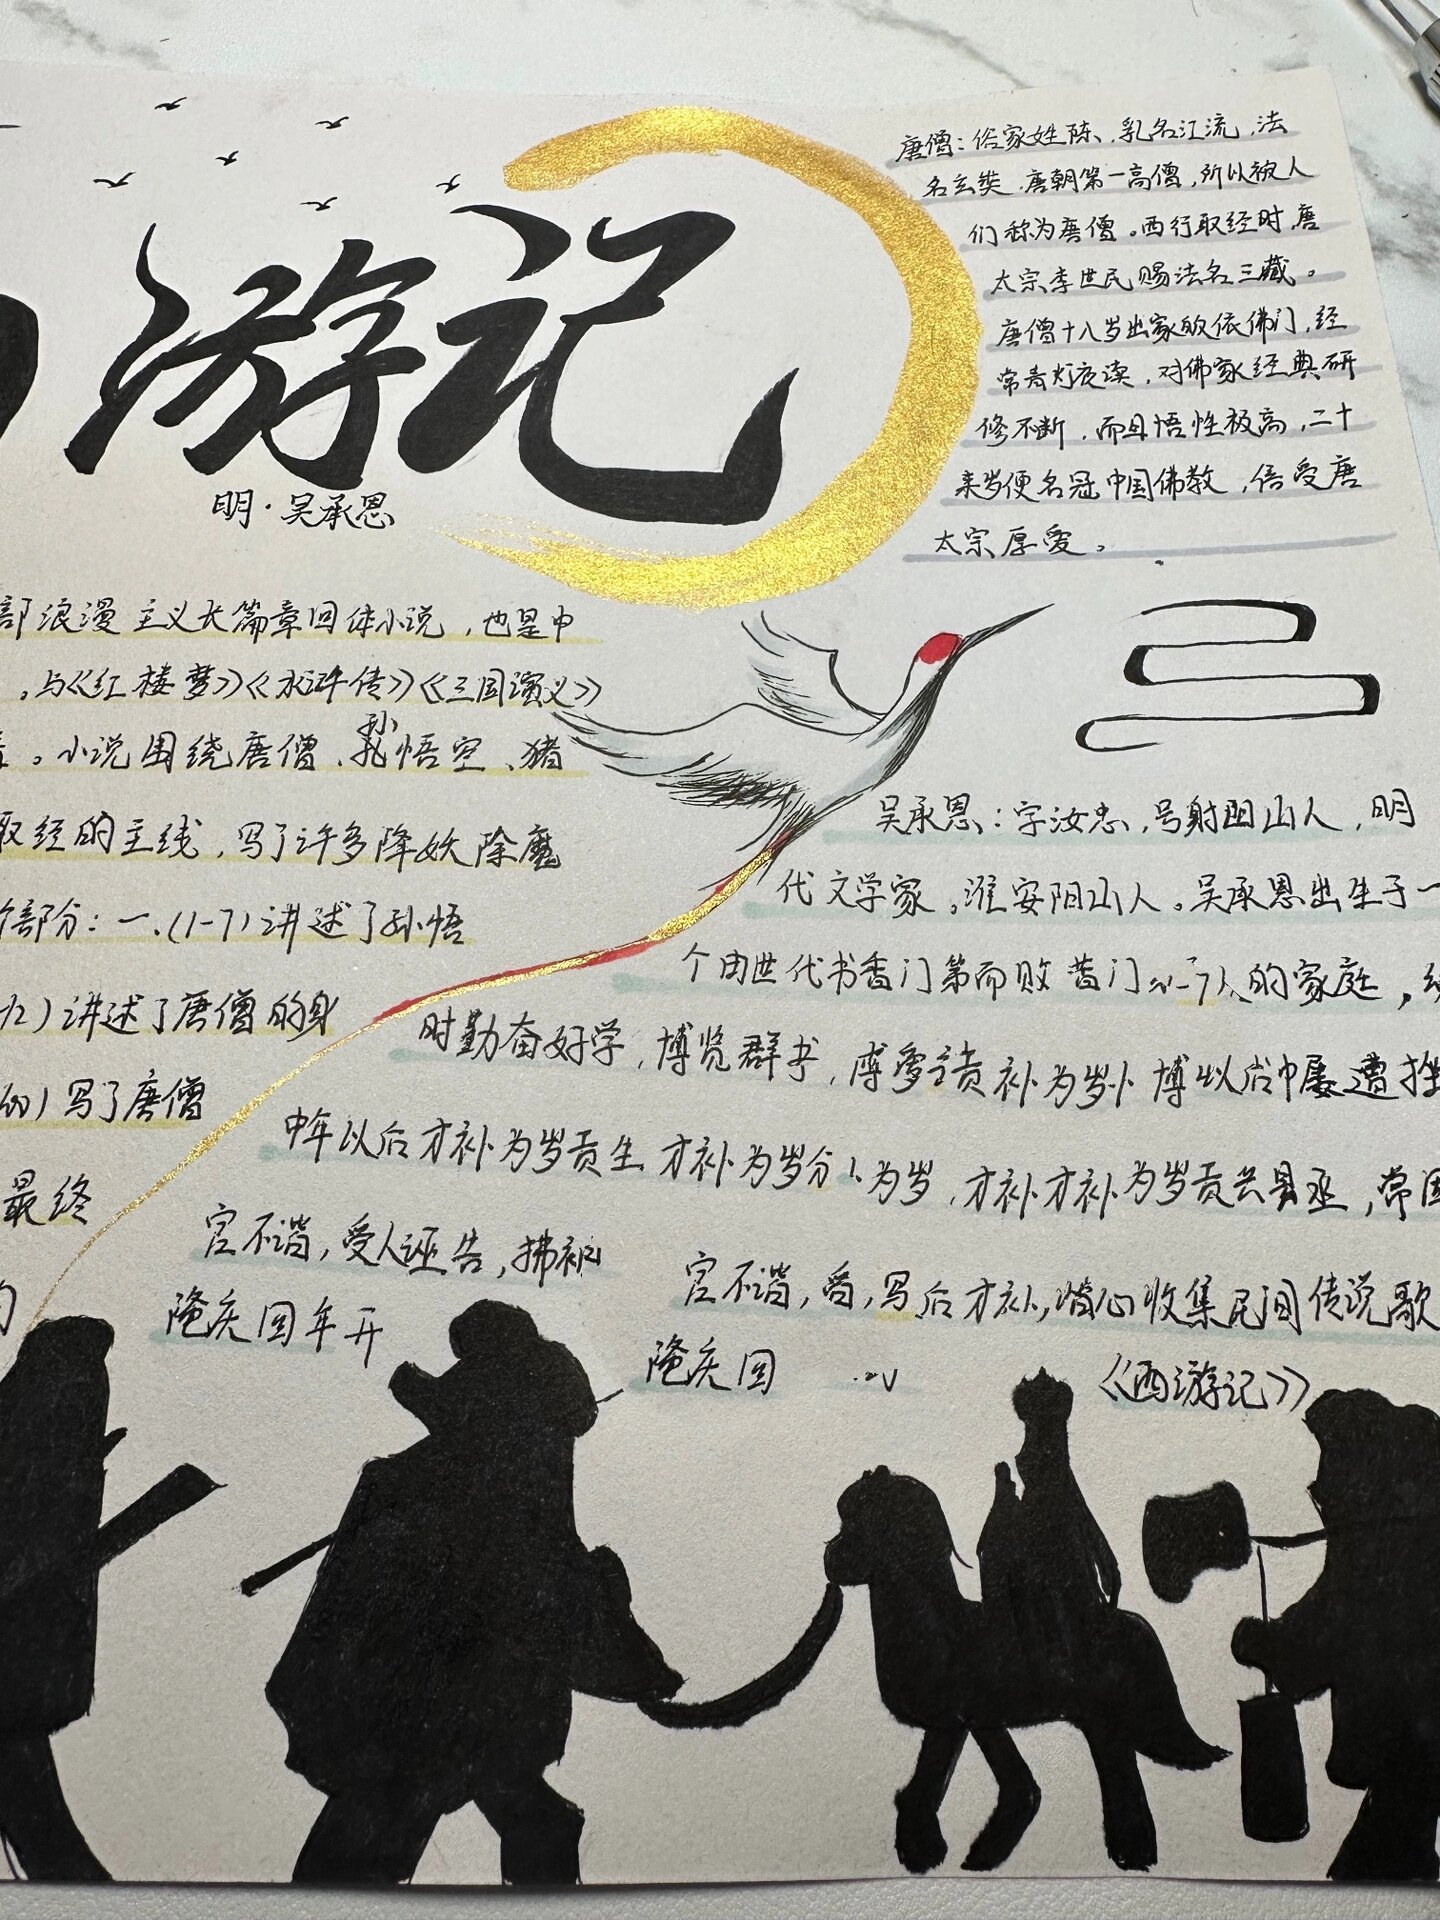 游记
明·吴承恩
唐僧：俗家姓陈、乳名江流，法
名玄奘．唐朝第一高僧，所以被人
们称为唐僧。西行取经时，唐
太宗李世民赐法名三藏。
唐僧十八岁出家皈依佛门，经
常青灯夜读，对佛家经典研
修不断，而且悟性极高，二十
来岁便名冠中国佛教，倍受唐
太宗厚爱。
部浪漫主义长篇章回体小说，也是中
，与《红楼梦》《水浒传》《三国演义》
。小说围绕唐僧、孙悟空、猪
取经的主线，写了许多降妖除魔
个部分：一．(1-7)讲述了孙悟
九）讲述了唐僧的身
）写了唐僧
最终
的
吴承恩：字汝忠，号射阳山人，明
代文学家。淮安阳山人。吴承恩出生于一
个由世代书香门第而败 门 的家庭，
时勤奋好学，博览群书， 补为岁 博 以后 屡遭挫
中年以后才补为岁贡生 才补为岁 为岁，才补才补为岁贡 县丞，常因
官不谐，受人诬告，拂袖
官不谐， ，写后才补， 心收集民间传说歌
隆庆回年开
隆庆回
《西游记》